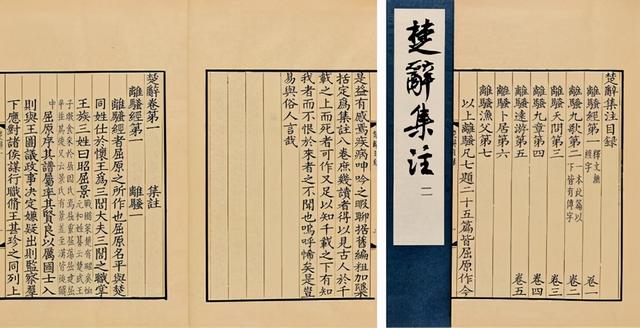 楚辭集注目録
離騷經第一 釋文無經字 卷一
離騷九歌第二 一本此篇以下皆有傳字 卷二
離騷天問第三 卷三
離騷九章第四 卷四
離騷遠游第五 卷五
離騷卜居第六
離騷漁父第七
以上離騷凡七題二十五篇皆屈原作今
楚辭集注 一
是益有感焉疾病呻吟之暇聊据舊編粗加檃
括定爲集註八卷庶幾讀者得以見古人於千
載之上而死者可作又足以知千載之下有知
我者而不恨於來者之不聞也嗚呼悕矣是豈
易與俗人言哉
楚辭卷第一 集註
離騷經第一 離騷一
離騷經者屈原之所作也屈原名平與楚
同姓仕於懷王爲三閭大夫三閭之職掌
王族三姓曰昭屈景
屈原序其譜屬率其賢良以厲國士入
則與王圖議政事決定嫌疑出則監察羣
下應對諸侯謀行職脩王甚珍之同列上